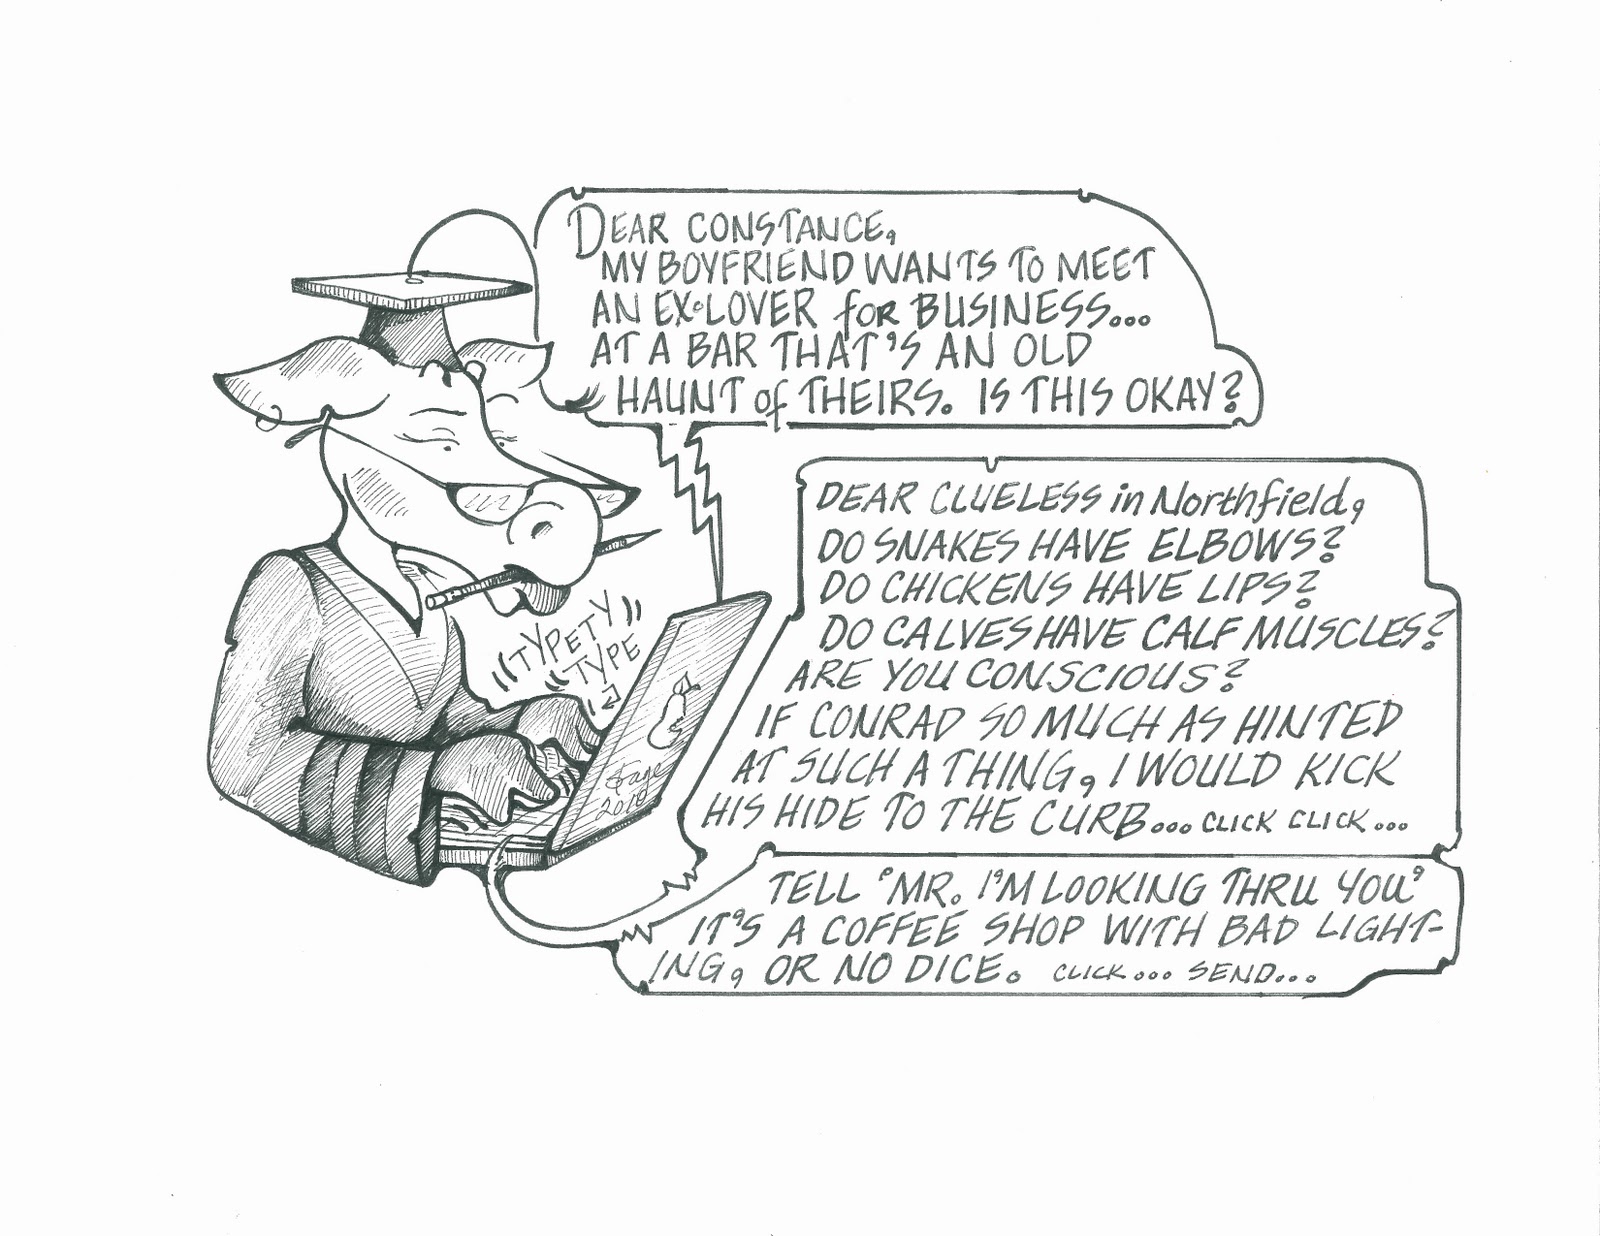 DEAR CONSTANCE,
MY BOYFRIEND WANTS TO MEET
AN EX-LOVER for BUSINESS...
AT A BAR THAT'S AN OLD
HAUNT of THEIRS. IS THIS OKAY?
DEAR CLUELESS in Northfield,
DO SNAKES HAVE ELBOWS?
DO CHICKENS HAVE LIPS?
DO CALVES HAVE CALF MUSCLES?
ARE YOU CONSCIOUS?
IF CONRAD SO MUCH AS HINTED
AT SUCH A THING, I WOULD KICK
HIS HIDE TO THE CURB... CLICK CLICK...
TELL 'MR. I'M LOOKING THRU YOU'
IT'S A COFFEE SHOP WITH BAD LIGHT-
ING, OR NO DICE. CLICK... SEND...
TYPETY
TYPE
2018